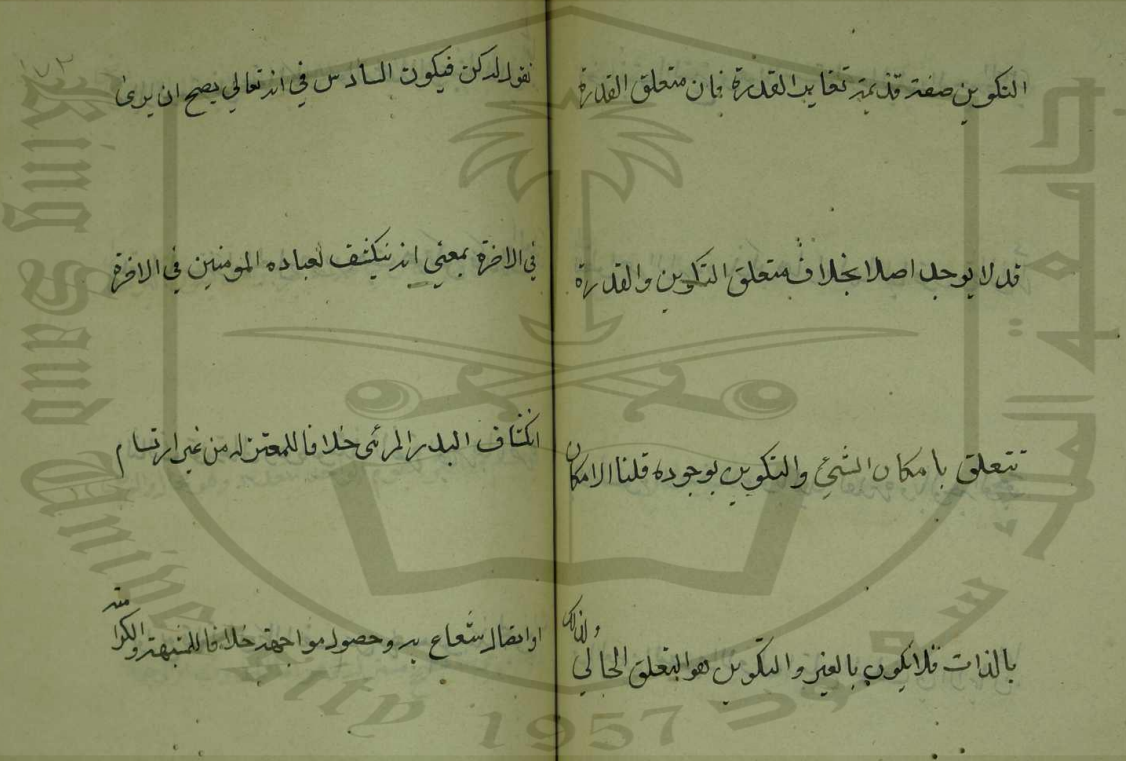 التكوين صفة قديمة تغاير القدرة فان متعلق القدرة
قد لا يوجد اصلا بخلاف متعلق التكوين والقدرة
تتعلق بامكان الشيئ والتكوين بوجوده قلنا الامكان
بالذات فلايكون بالغير والتكوين هو التعلق الحالي ولذلك
نقوله لدكن فيكون السادس في انه تعالي يصح ان يرى
في الاخرة بمعني انه ينكشف لعباده المومنين في الاخرة
انكشاف البدر المرئى خلافا للمعتزله من غير ارتسام
او اتصال شعاع به وحصول مواجهة خلافا للمشبهة والكرامية
جامعة الملك سعود
King Saud University
1957